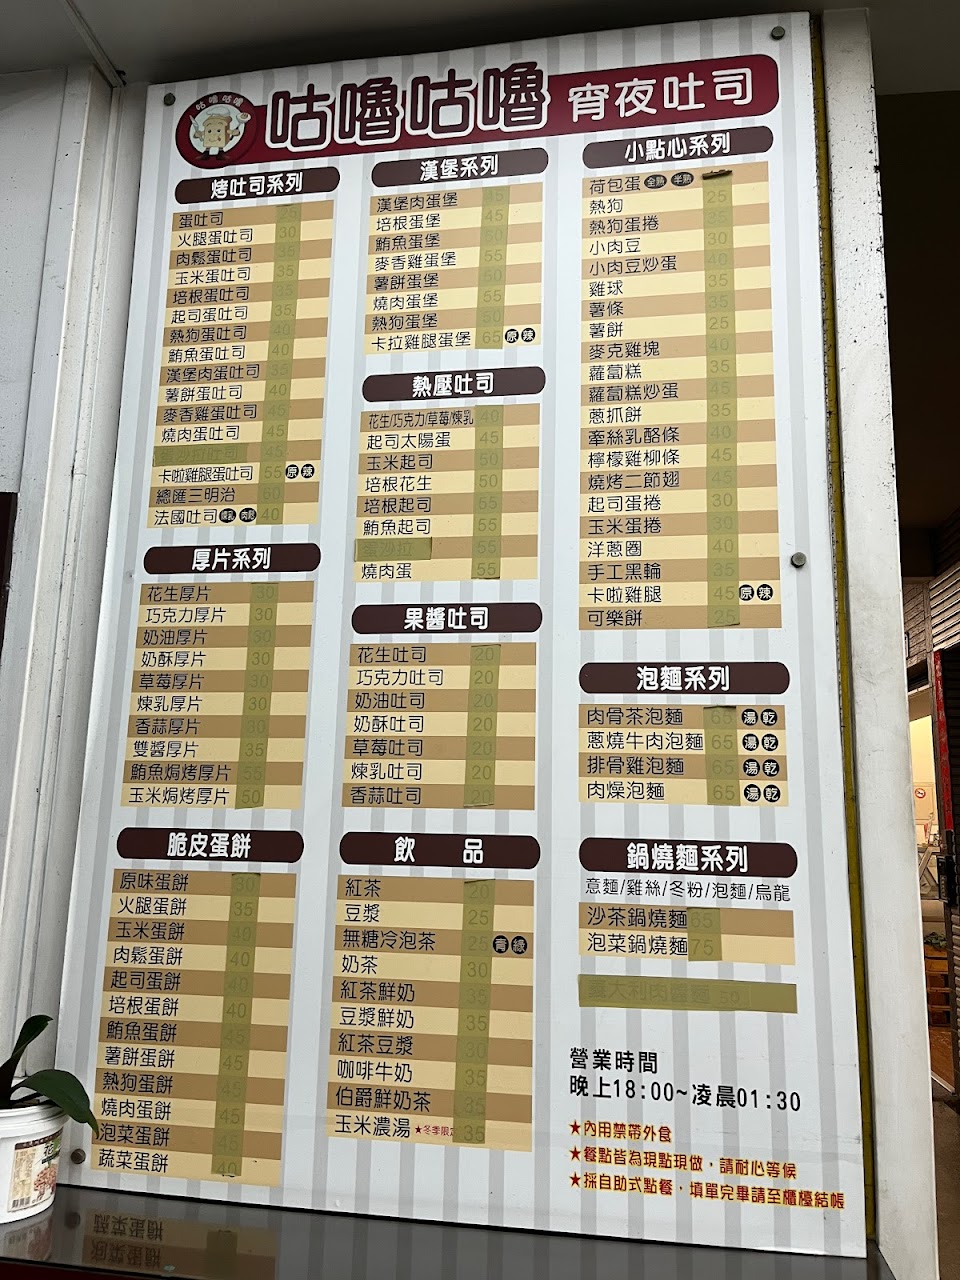 咕嚕咕嚕
咕嚕咕嚕 宵夜吐司
烤吐司系列
蛋吐司 25
火腿蛋吐司 30
肉鬆蛋吐司 35
玉米蛋吐司 35
培根蛋吐司 35
起司蛋吐司 35
熱狗蛋吐司 40
鮪魚蛋吐司 40
漢堡肉蛋吐司 35
薯餅蛋吐司 40
麥香雞蛋吐司 45
燒肉蛋吐司 45
沙拉吐司 45
卡啦雞腿蛋吐司 55 原 辣
總匯三明治 60
法國吐司 煉乳 肉鬆 40
厚片系列
花生厚片 30
巧克力厚片 30
奶油厚片 30
奶酥厚片 30
草莓厚片 30
煉乳厚片 30
香蒜厚片 30
雙醬厚片 35
鮪魚焗烤厚片 55
玉米焗烤厚片 50
脆皮蛋餅
原味蛋餅 30
火腿蛋餅 35
玉米蛋餅 40
肉鬆蛋餅 40
起司蛋餅 40
培根蛋餅 40
鮪魚蛋餅 45
薯餅蛋餅 45
熱狗蛋餅 45
燒肉蛋餅 45
泡菜蛋餅 45
蔬菜蛋餅 40
漢堡系列
漢堡肉蛋堡 45
培根蛋堡 45
鮪魚蛋堡 50
麥香雞蛋堡 55
薯餅蛋堡 50
燒肉蛋堡 55
熱狗蛋堡 50
卡拉雞腿蛋堡 65 原 辣
熱壓吐司
花生/巧克力/草莓/煉乳 40
起司太陽蛋 45
玉米起司 50
培根花生 50
培根起司 55
鮪魚起司 55
沙拉 55
燒肉蛋 55
果醬吐司
花生吐司 20
巧克力吐司 20
奶油吐司 20
奶酥吐司 20
草莓吐司 20
煉乳吐司 20
香蒜吐司 20
飲 品
紅茶 20
豆漿 25
無糖冷泡茶 25 青 綠
奶茶 30
紅茶鮮奶 35
豆漿鮮奶 35
紅茶豆漿 30
咖啡牛奶 35
伯爵鮮奶茶 35
玉米濃湯 ★冬季限定 35
小點心系列
荷包蛋 全熟 半熟
熱狗 25
熱狗蛋捲 35
小肉豆 30
小肉豆炒蛋 40
雞球 35
薯條 35
薯餅 25
麥克雞塊 40
蘿蔔糕 35
蘿蔔糕炒蛋 45
蔥抓餅 35
牽絲乳酪條 40
檸檬雞柳條 45
燒烤二節翅 45
起司蛋捲 30
玉米蛋捲 30
洋蔥圈 40
手工黑輪 35
卡啦雞腿 45 原 辣
可樂餅 25
泡麵系列
肉骨茶泡麵 65 湯 乾
蔥燒牛肉泡麵 65 湯 乾
排骨雞泡麵 65 湯 乾
肉燥泡麵 65 湯 乾
鍋燒麵系列
意麵/雞絲/冬粉/泡麵/烏龍
沙茶鍋燒麵 65
泡菜鍋燒麵 75
義大利肉醬麵 50
營業時間
晚上18:00~凌晨01:30
★內用禁帶外食
★餐點皆為現點現做，請耐心等候
★採自助式點餐，填單完畢請至櫃檯結帳